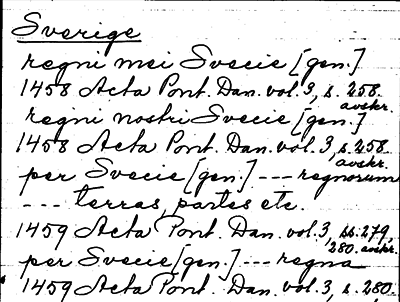 Sverige
regni mei Svecie [gen.]
1458 Acta Pont. Dan. vol. 3, s. 258.
avskr.
regni nostri Svecie [gen.]
1458 Acta Pont. Dan. vol. 3, s. 258
avskr.
per Svecie [gen.] --- regnorum
--- terras, partes etc.
1459 Acta Pont. Dan. vol. 3, ss. 279,
280. avskr.
per Svecie [gen.] --- regna
1459 Acta Pont. Dan. vol. 3, s. 280.